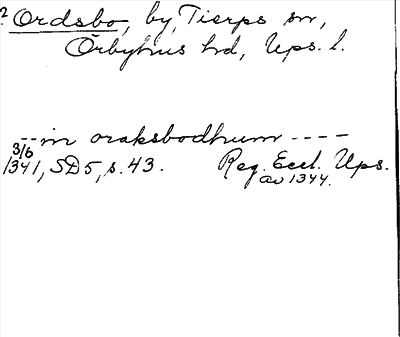 ? Ordsbo, by, Tierps sn,
Örbyhus hd, Ups. l.
--in oraksbodhum ----
3/6
1341, SD5, s. 43. Reg. Eccl. Ups.
av 1344.